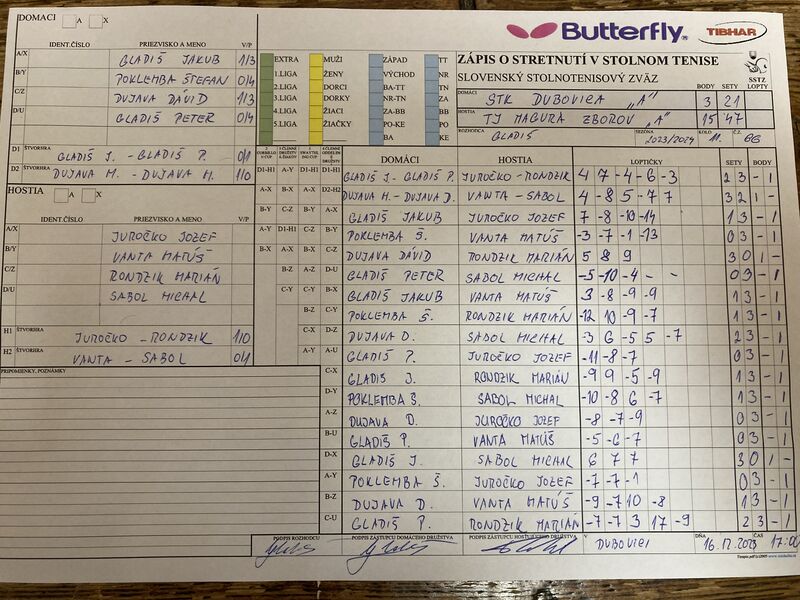 DOMÁCI A X
Butterfly
TIBHAR
IDENT.ČÍSLO PRIEZVISKO A MENO V/P
A/X GLADIŠ JAKUB 1/3
B/Y POKLEMBA ŠTEFAN 0/4
C/Z DUJAVA DÁVID 1/3
D/U GLADIŠ PETER 0/4
D1 ŠTVORHRA GLADIŠ J. - GLADIŠ P. 0/1
D2 ŠTVORHRA DUJAVA M. - DUJAVA M. 1/0
HOSTIA A X
IDENT.ČÍSLO PRIEZVISKO A MENO V/P
A/X JUROČKO JOZEF
B/Y VANTA MATÚŠ
C/Z RONDZIK MARIÁN
D/U SABOL MICHAL
H1 ŠTVORHRA JUROČKO - RONDZIK 1/0
H2 ŠTVORHRA VANTA - SABOL 0/1
PRIPOMIENKY, POZNÁMKY
EXTRA MUŽI ZÁPAD TT
1.LIGA ŽENY VÝCHOD NR
2.LIGA DORCI BA-TT TN
3.LIGA DORKY NR-TN ZA
4.LIGA ŽIACI ZA-BB BB
5.LIGA ŽIAČKY PO-KE PO
BA KE
ZÁPIS O STRETNUTÍ V STOLNOM TENISE
SLOVENSKÝ STOLNOTENISOVÝ ZVÄZ
SSTZ
BODY SETY LOPTY
DOMÁCI STK DUBOVICA „A" 3 21
HOSTIA TJ MAGURA ZBOROV „A" 15 47
ROZHODCA GLADIŠ SEZÓNA 2023/2024 KOLO 11. Č.Z. 66
DOMÁCI HOSTIA LOPTIČKY SETY BODY
D1-H1 A-Y D1-H1 D1-H1 GLADIŠ J - GLADIŠ P. JUROČKO - RONDZIK 4 7 -4 -6 -3 2 3 - 1
A-X B-X A-X D2-H2 DUJAVA M. - DUJAVA D. VANTA - SABOL 4 -8 5 -7 7 3 2 1 -
B-Y C-Z B-Y A-X GLADIŠ JAKUB JUROČKO JOZEF 7 -8 -10 -14 1 3 - 1
A-Y D1-H1 C-Z B-Y POKLEMBA Š. VANTA MATÚŠ -3 -7 -1 -13 0 3 - 1
B-X A-X B-X C-Z DUJAVA DÁVID RONDZIK MARIÁN 5 8 9 3 0 1 -
B-Z A-Z D-U GLADIŠ PETER SABOL MICHAL -5 -10 -4 - - 0 3 - 1
C-Y C-Y B-X GLADIŠ JAKUB VANTA MATÚŠ 3 -8 -9 -9 1 3 - 1
B-Z C-Y POKLEMBA Š. RONDZIK MARIÁN -12 10 -9 -7 1 3 - 1
C-X D-Z DUJAVA D. SABOL MICHAL -3 6 -5 5 -7 2 3 - 1
A-Y A-U GLADIŠ P. JUROČKO JOZEF -11 -8 -7 0 3 - 1
C-X GLADIŠ J. RONDZIK MARIÁN -9 9 -5 -9 1 3 - 1
D-Y POKLEMBA Š. SABOL MICHAL -10 -8 6 -7 1 3 - 1
A-Z DUJAVA D. JUROČKO JOZEF -8 -7 -9 0 3 - 1
B-U GLADIŠ P. VANTA MATÚŠ -5 -6 -7 0 3 - 1
D-X GLADIŠ J. SABOL MICHAL 6 7 7 3 0 1 -
A-Y POKLEMBA Š. JUROČKO JOZEF -7 -7 -1 0 3 - 1
B-Z DUJAVA D. VANTA MATÚŠ -9 -7 10 -8 1 3 - 1
C-U GLADIŠ P. RONDZIK MARIÁN -7 -7 3 17 -9 2 3 - 1
PODPIS ROZHODCU PODPIS ZÁSTUPCU DOMÁCEHO DRUŽSTVA PODPIS ZÁSTUPCU HOSŤUJÚCEHO DRUŽSTVA V DUBOVICI DŇA 16.12.2023 ČAS 17:00